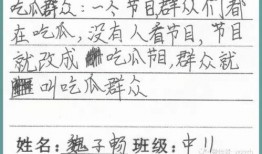 吃瓜群众：一个节目群众们都
在吃瓜，没有人看节目，节目
就改成吃瓜节目，群众就
叫吃瓜群众
姓名：魏子畅 班级：中11